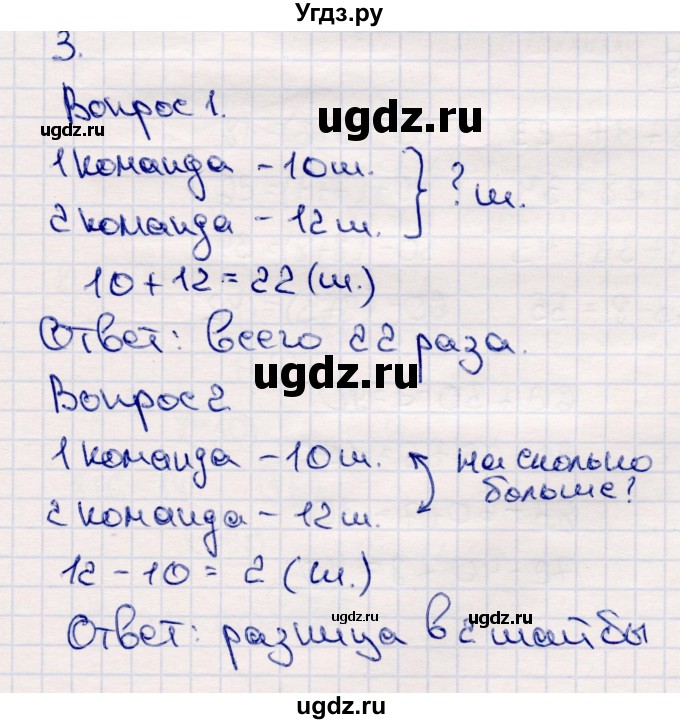 Угдз.ру
3.
Вопрос 1.
ugdz.ru
ugdz.ru
1 команда - 10 ш.
2 команда - 12 ш. } ? ш.
10 + 12 = 22 (ш.)
Ответ: всего 22 раза.
ugdz.ru
Вопрос 2
1 команда - 10 ш. на сколько
больше?
2 команда - 12 ш.
12 - 10 = 2 (ш.)
ugdz.ru
ugdz.ru
Ответ: разница в 2 шайбы
ugdz.ru
ugdz.ru